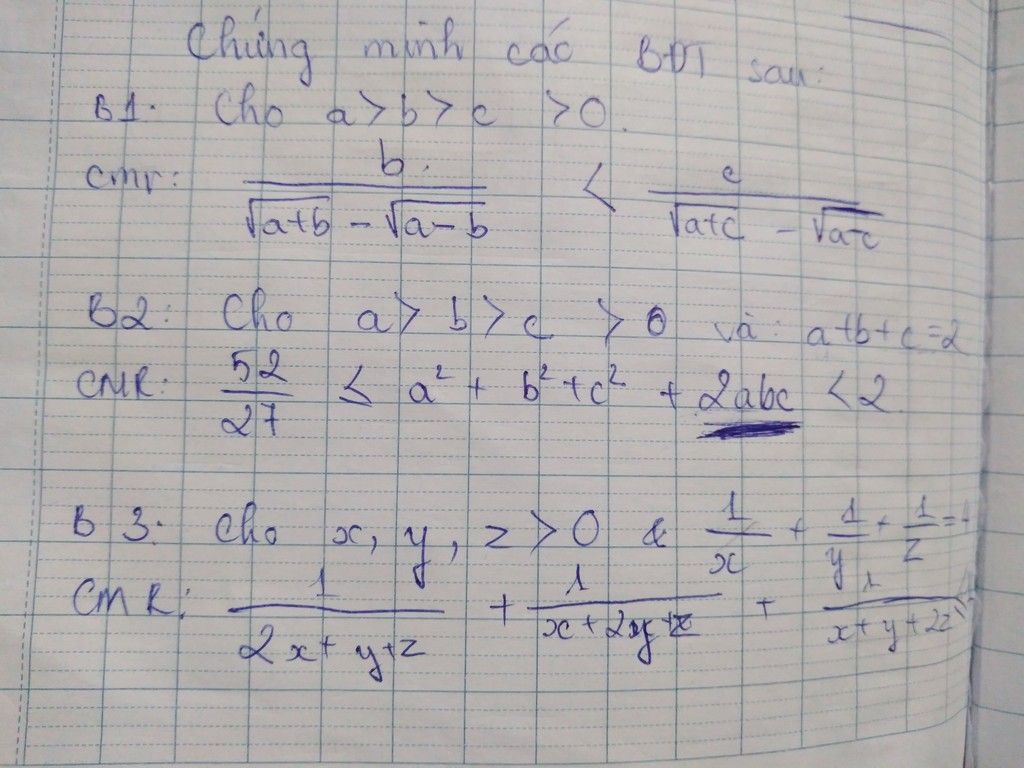 Chứng minh các BĐT sau:
B1. Cho a > b > c > 0.
cmr: b / (√(a+b) - √(a-b)) < c / (√(a+c) - √(a-c))
B2: Cho a > b > c > 0 và: a+b+c=2
CMR: 52/27 ≤ a² + b² + c² + 2abc < 2
B3: Cho x, y, z > 0 & 1/x + 1/y + 1/z = 4
CMR: 1/(2x+y+z) + 1/(x+2y+z) + 1/(x+y+2z)